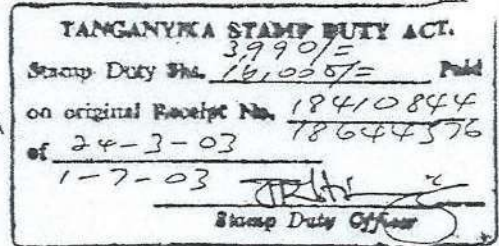 TANGANYIKA STAMP DUTY ACT.
3,990/=
Stamp Duty Shs. 16,000/= Paid
on original Receipt No. 18410844
18644576
of 24-3-03
1-7-03
Stamp Duty Officer